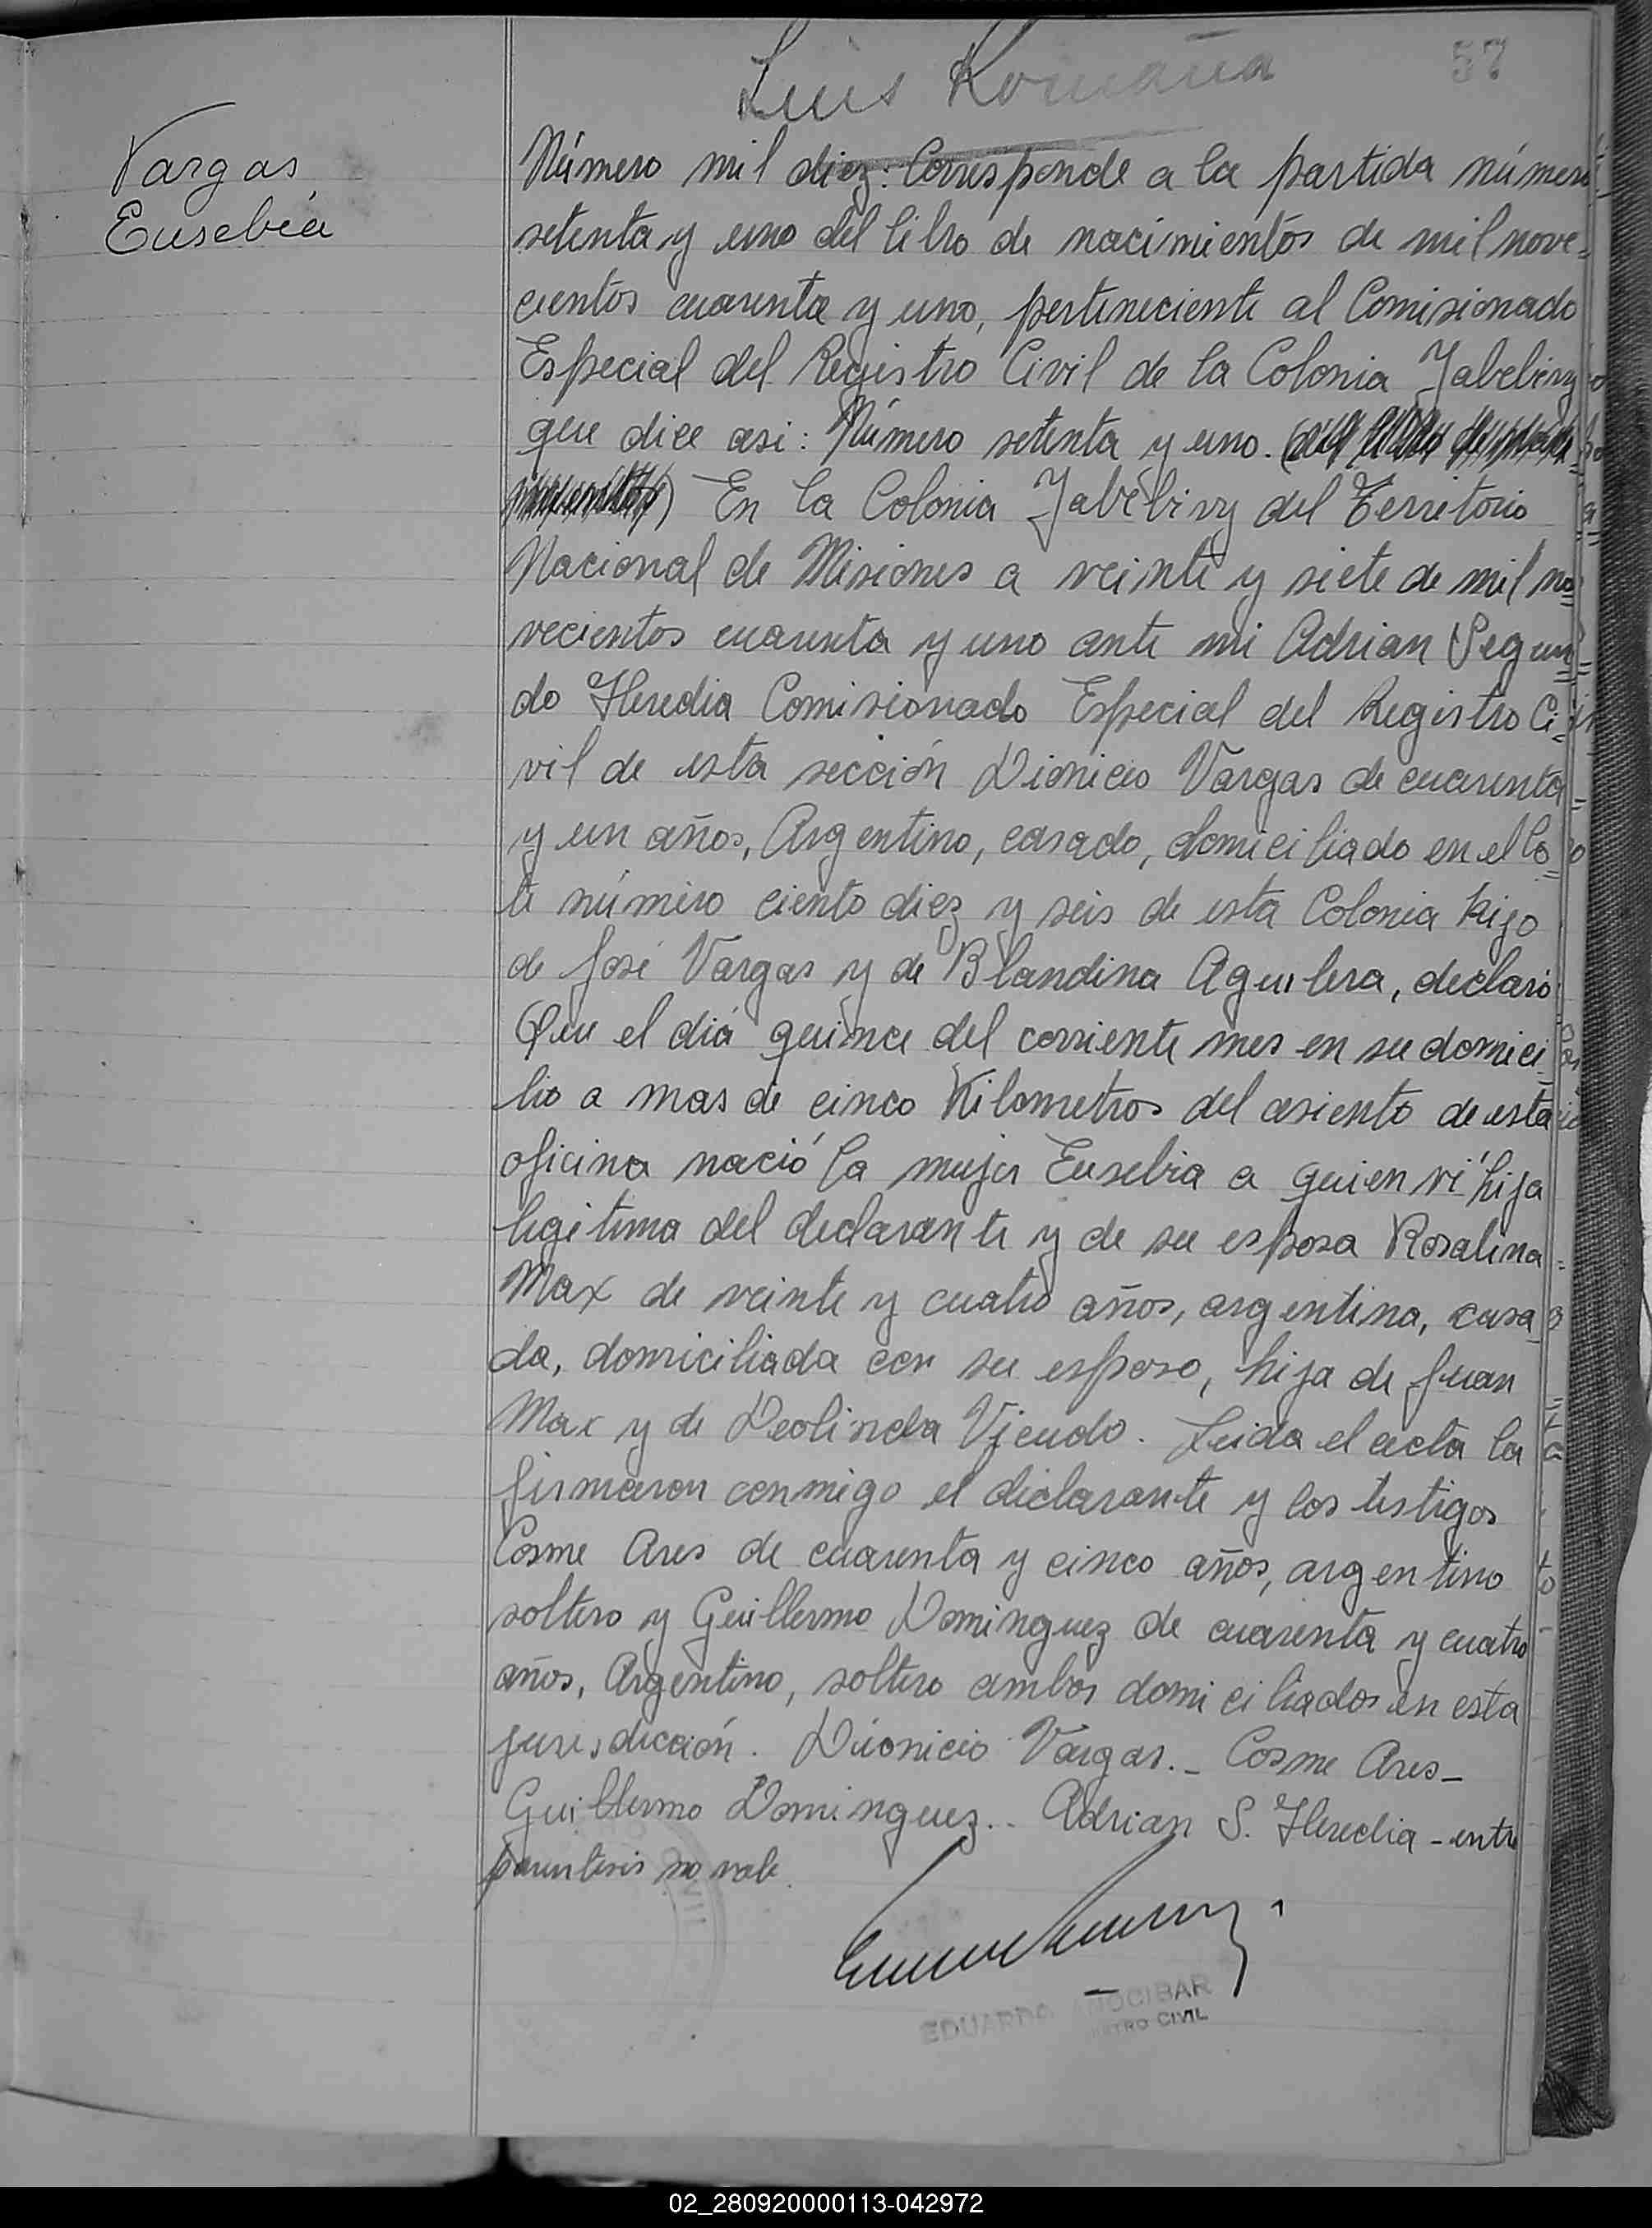 Luis Romaña
57
Vargas
Eusebia
Número mil diez: Corresponde a la partida número
setenta y uno del libro de nacimientos de mil nove=
cientos cuarenta y uno, perteneciente al Comisionado
Especial del Registro Civil de la Colonia Yabebiry
que dice asi: Número setenta y uno. (
) En la Colonia Yabebiry del Territorio
Nacional de Misiones a veinte y siete de mil no=
vecientos cuarenta y uno ante mi Adrian Segun=
do Heredia Comisionado Especial del Registro Ci=
vil de esta sección Dionicio Vargas de cuarenta
y un años, Argentino, casado, domiciliado en el lo=
te número ciento diez y seis de esta Colonia hijo
de José Vargas y de Blandina Aguilera, declaró:
Que el diá quince del corriente mes en su domici=
lio a mas de cinco Kilometros del asiento de esta
oficina nació la mujer Eusebia a quien ví hija
legitima del declarante y de su esposa Rosalina
Max de veinte y cuatro años, argentina, casa=
da, domiciliada con su esposo, hija de Juan
Max y de Deolinda Vjeudo. Leida el acta la
firmaron conmigo el declarante y los testigos
Cosme Ares de cuarenta y cinco años, argentino
soltero y Guillermo Dominguez de cuarenta y cuatro
años, Argentino, soltero ambos domiciliados en esta
jurisdicción. Dionicio Vargas._ Cosme Ares_
Guillermo Dominguez.. Adrian S. Heredia - entre
parentesis no vale.
EDUARDO ANOCIBAR
CIVIL
02_280920000113-042972